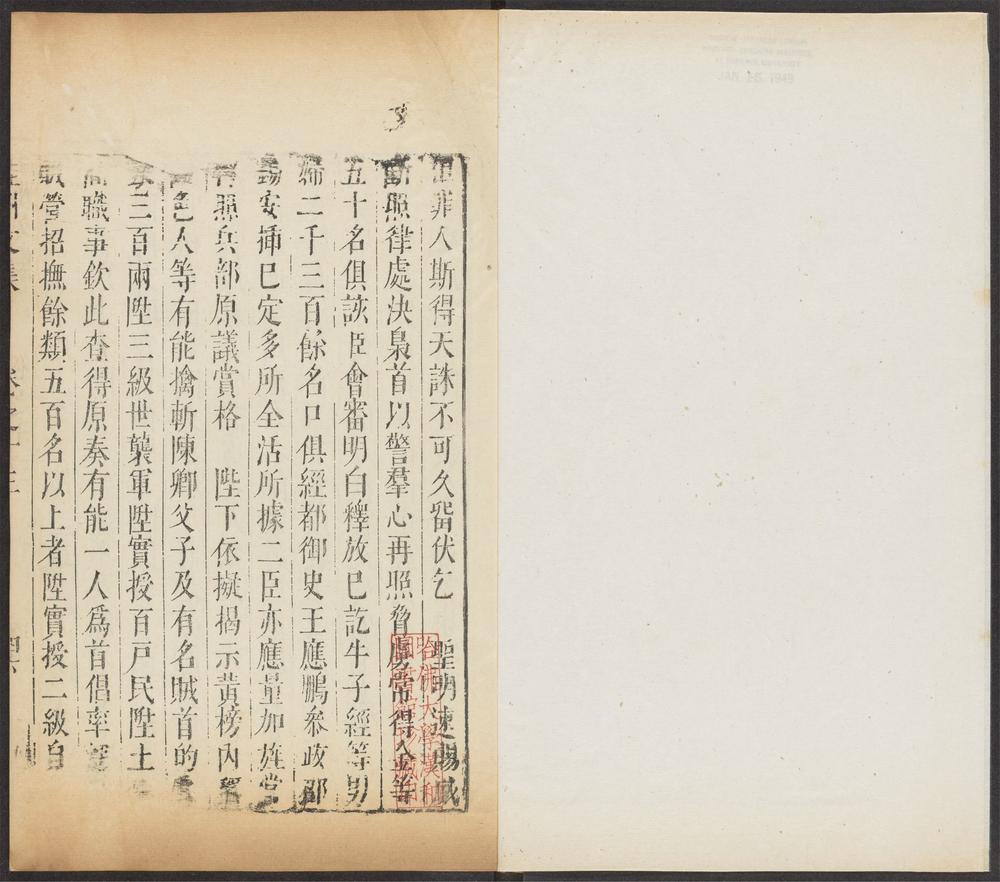 罪人斯得天誅不可久留伏乞 聖明速賜
照律處決梟首以警羣心再照脅虜常得金等
五十名俱該臣會審明白釋放已訖牛子經等男
婦二千三百餘名口俱經都御史王應鵬叅政
安揷已定多所全活所據二臣亦應量加旌
照兵部原議賞格 陛下依擬揭示黃榜内
色人等有能擒斬陳卿父子及有名賊首的
三百兩陞三級世襲軍陞實授百戶民陞土
職事欽此查得原奏有能一人爲首倡率
營招撫餘類五百名以上者陞實授二級
文集 卷之十三
哈佛大學漢和
圖書館珍藏印
JAN 15 1949